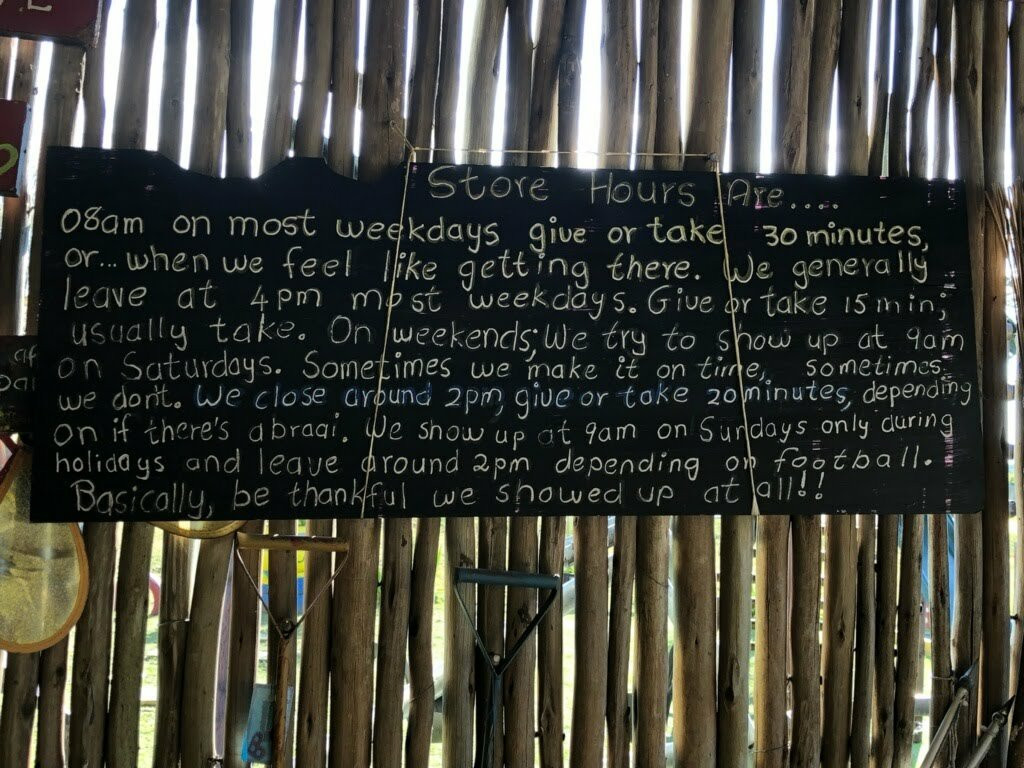 Store Hours Are....
08am on most weekdays give or take 30 minutes,
or... when we feel like getting there. We generally
leave at 4pm most weekdays. Give or take 15 min;
usually take. On weekends; We try to show up at 9am
on Saturdays. Sometimes we make it on time, sometimes
we dont. We close around 2pm, give or take 20 minutes, depending
on if there's a braai. We show up at 9am on Sundays only during
holidays and leave around 2pm depending on football.
Basically, be thankful we showed up at all!!